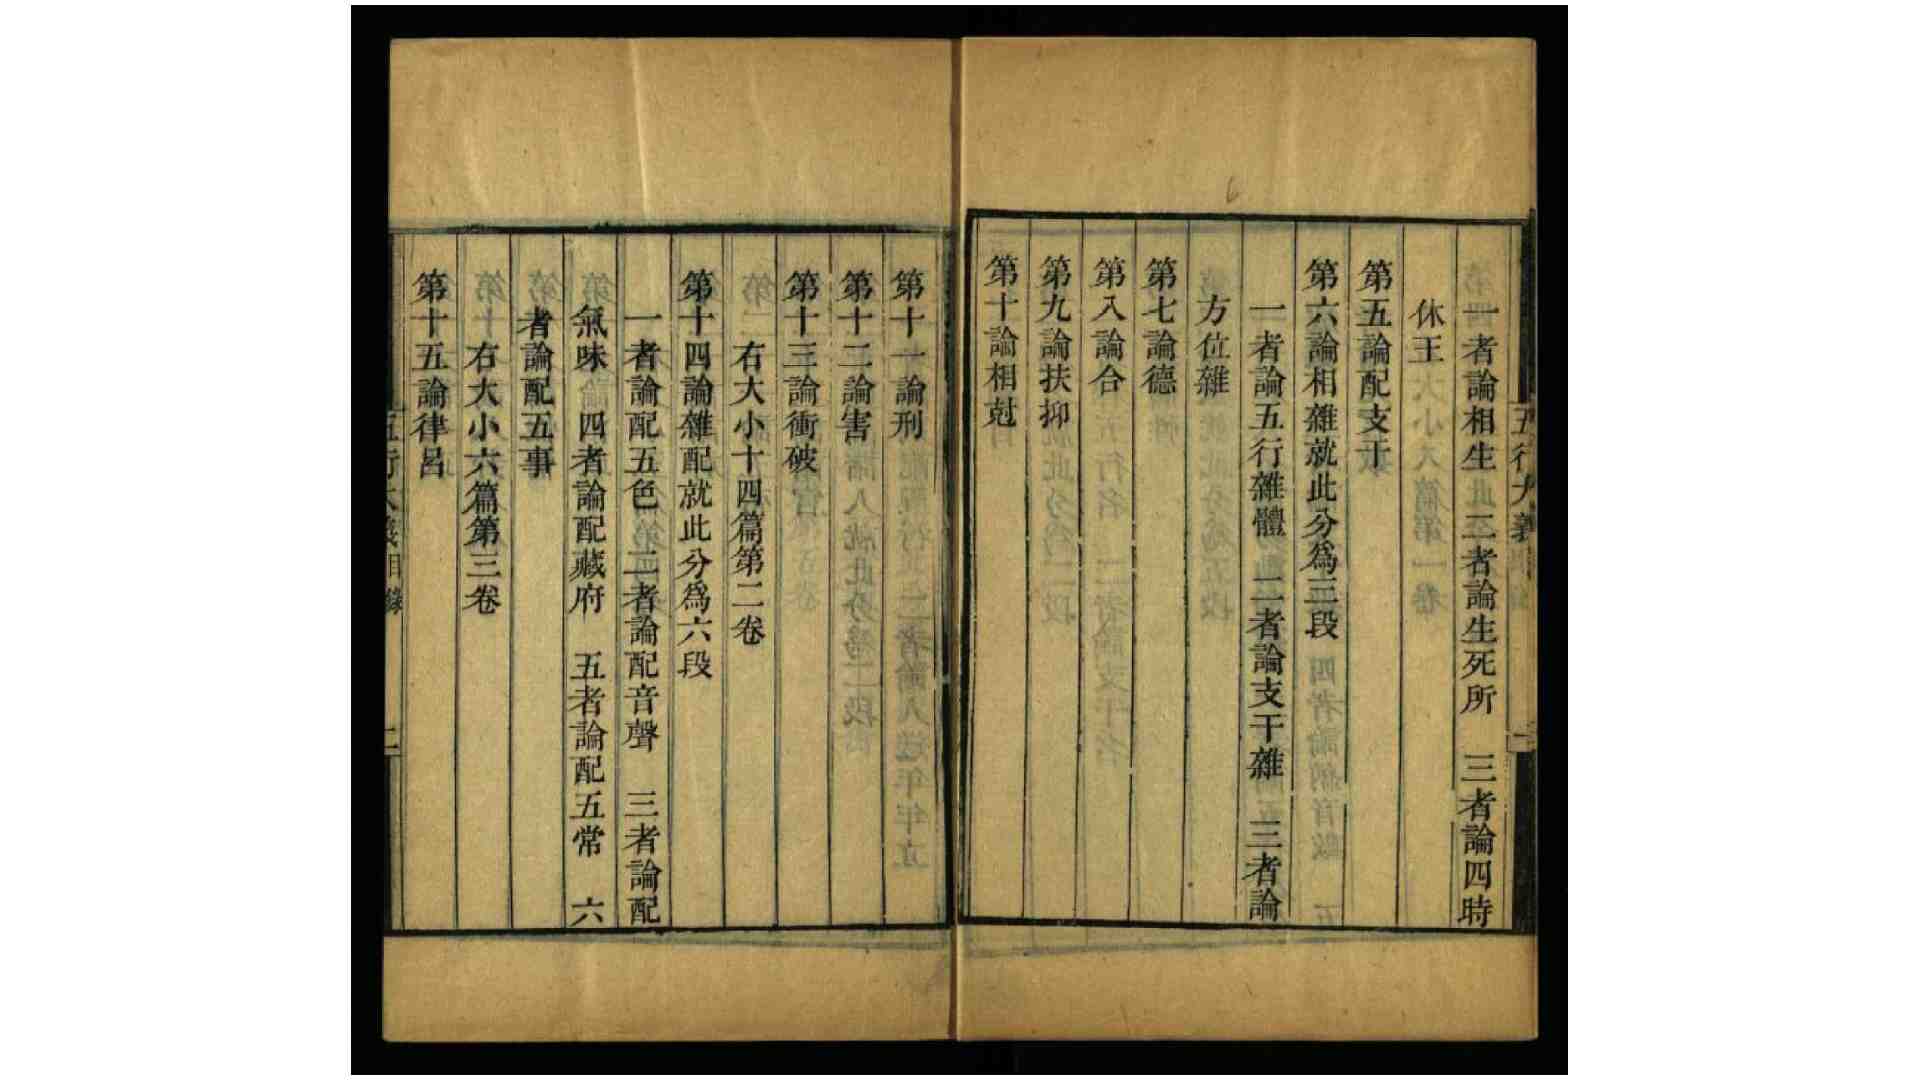 五行大義
一
一者論相生　二者論生死所　三者論四時
休王
第五論配支干
第六論相雜就此分爲三段
一者論五行雜體　二者論支干雜　三者論
方位雜
第七論德
第八論合
第九論扶抑
第十論相尅
第十一論刑
第十二論害
第十三論衝破
右大小十四篇第二卷
第十四論雜配就此分爲六段
一者論配五色　二者論配音聲　三者論配
氣味　四者論配藏府　五者論配五常　六
者論配五事
右大小六篇第三卷
第十五論律呂
五行大義目錄
二